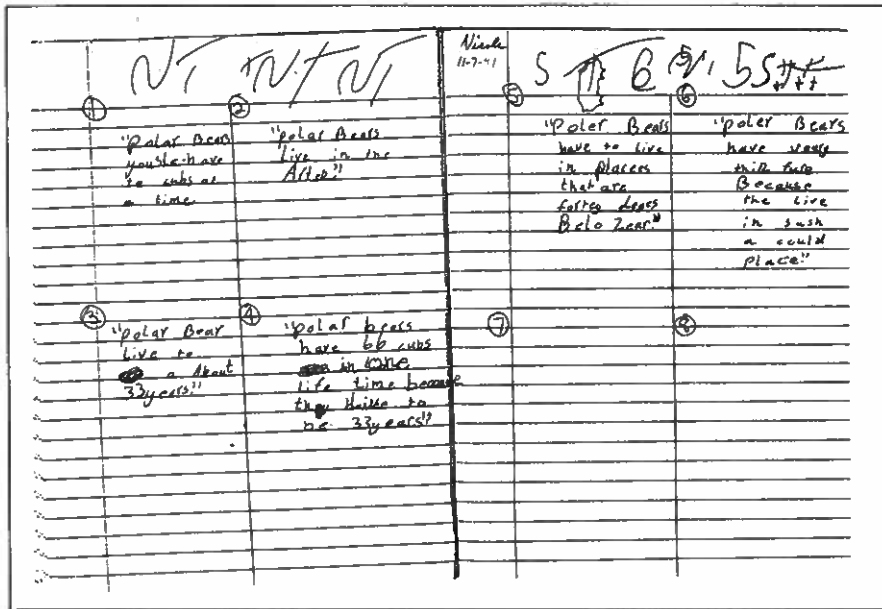 Nicole
11-7-91
①
"Polar Bears
yousle-have
to cubs at
a time
②
"polar Bears
Live in the
Artec"
③
"polar Bear
Live to
a About
33years"
④
"polar bears
have 66 cubs
in one
life time because
they
to
be 33years"
⑤
"Poler Bears
have to live
in placers
that are
Belo Zear"
⑥
"poler Bears
have
thik fure
Because
the live
in sush
a could
place"
⑦
⑧